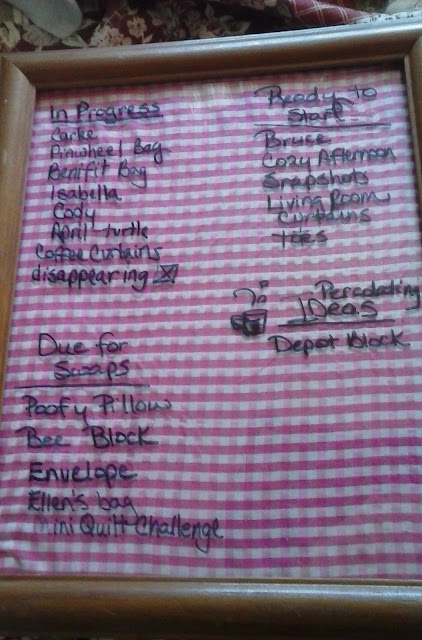 In Progress
Carlee
Pinwheel Bag
Benifit Bag
Isabella
Cody
April turtle
Coffee Curtains
disappearing
Ready to
Start
Bruce
Cozy Afternoon
Snapshots
Living Room
Curtains
toes
Peradating
IDeas
Depot Block
Due for
Swaps
Poofy Pillow
Bee Block
Envelope
Ellen's bag
Mini Quilt Challenge